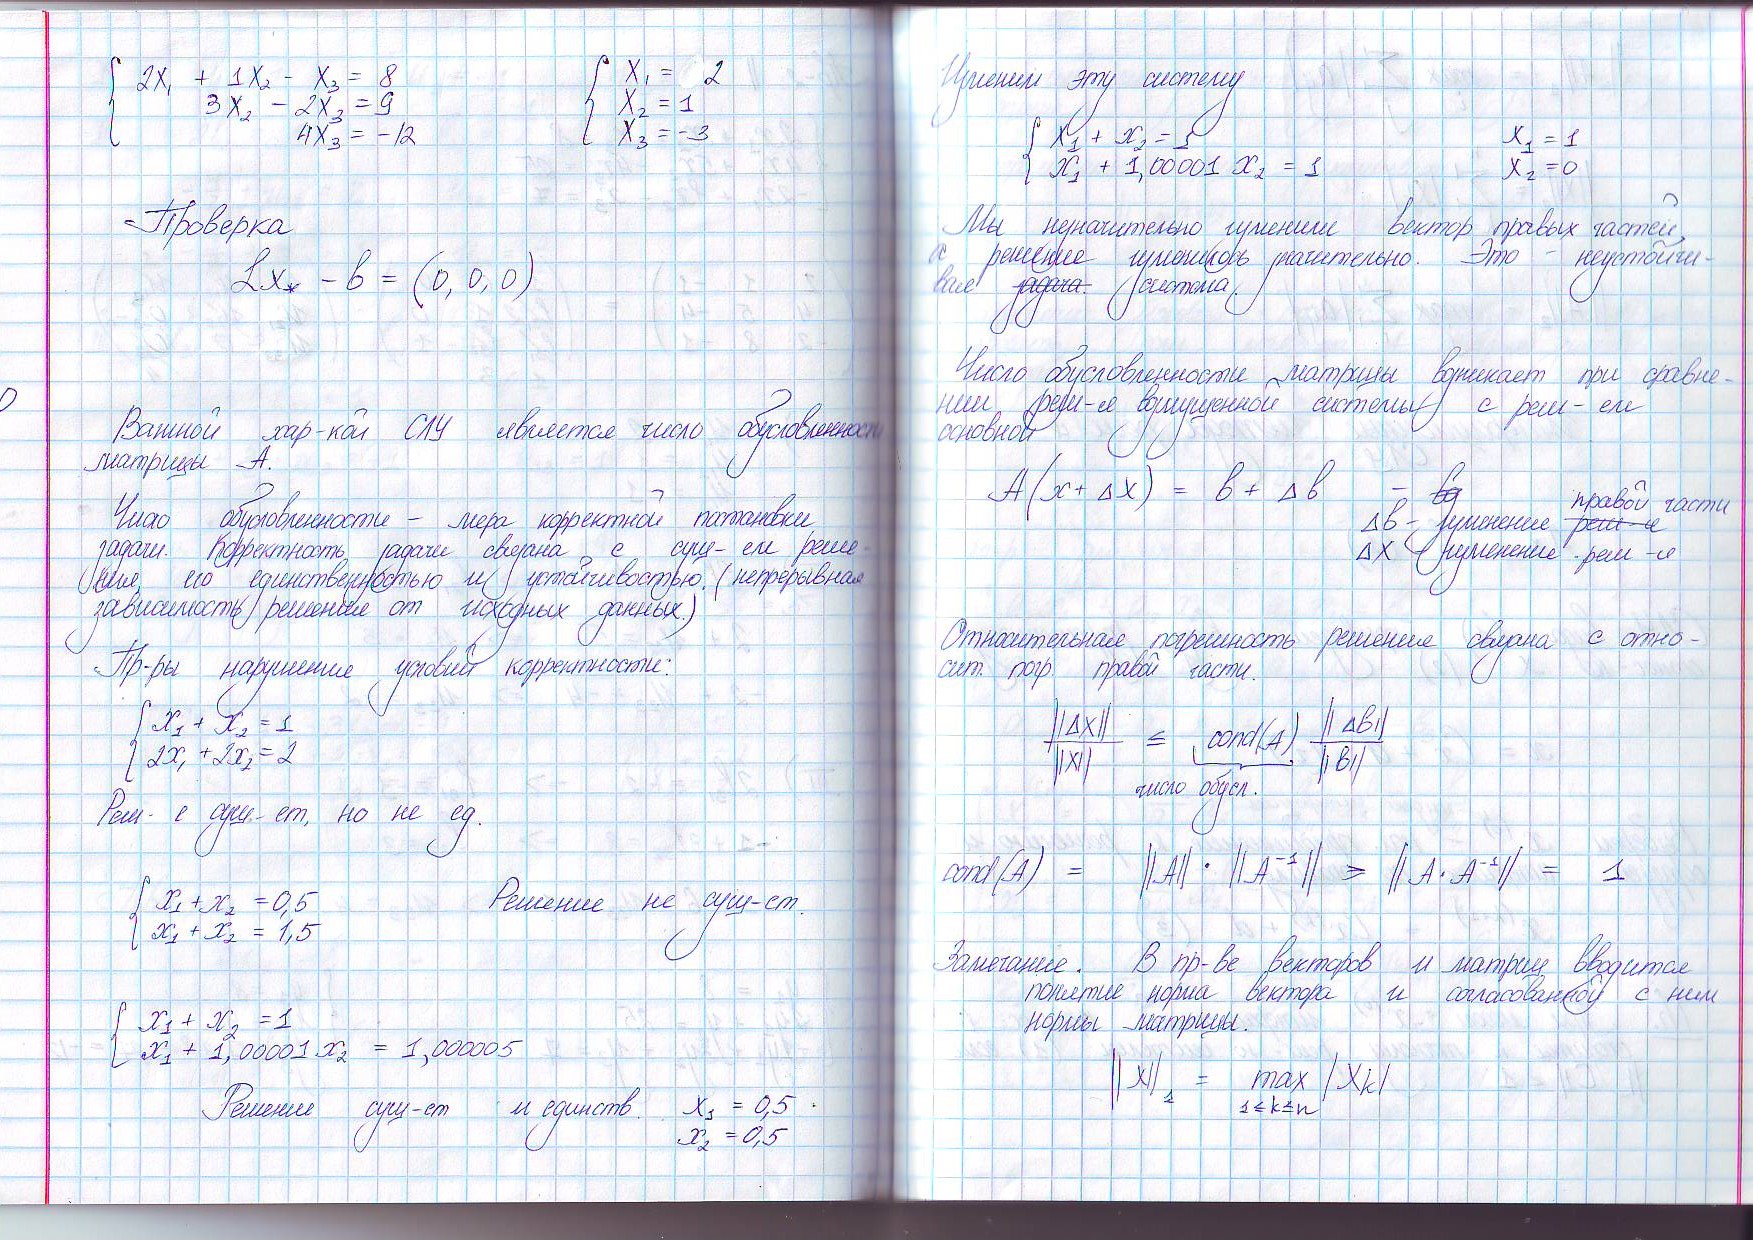 2x₁ + 1x₂ - x₃ = 8
3x₂ - 2x₃ = 9
4x₃ = -12
x₁ = 2
x₂ = 1
x₃ = -3
Проверка
Lx* - b = (0, 0, 0)
Важной хар-кой СЛУ является число обусловленности
матрицы A.
Число обусловленности – мера корректной постановки
задачи. Корректность задачи связана с сущ-ем реше-
ния, его единственностью и устойчивостью. (непрерывная
зависимость решения от исходных данных.)
Пр-ры нарушения условий корректности:
x₁ + x₂ = 1
2x₁ + 2x₂ = 2
Реш-е сущ-ет, но не ед.
x₁ + x₂ = 0,5
x₁ + x₂ = 1,5
Решение не сущ-ет.
x₁ + x₂ = 1
x₁ + 1,00001 x₂ = 1,000005
Решение сущ-ет и единств. x₁ = 0,5
x₂ = 0,5
Изменим эту систему
x₁ + x₂ = 1
x₁ + 1,00001 x₂ = 1
x₁ = 1
x₂ = 0
Мы незначительно изменили вектор правых частей,
а решение изменилось значительно. Это - неустойчи-
вая задача. система.
Число обусловленности матрицы возникает при сравне-
нии реш-я возмущенной системы с реш-ем
основной
A(x + Δx) = b + Δb -
правой части
Δb - изменение реш-е
Δx - изменение реш-я
Относительная погрешность решения связана с отно-
сит. погр. правой части.
||Δx|| / ||x|| ≤ cond(A) ||Δb|| / ||b||
число обусл.
cond(A) = ||A|| · ||A⁻¹|| ≥ ||A · A⁻¹|| = 1
Замечание. В пр-ве векторов и матриц вводится
понятие норма вектора и согласованной с ним
нормы матрицы.
||x||₁ = max |xₖ|
1≤k≤n